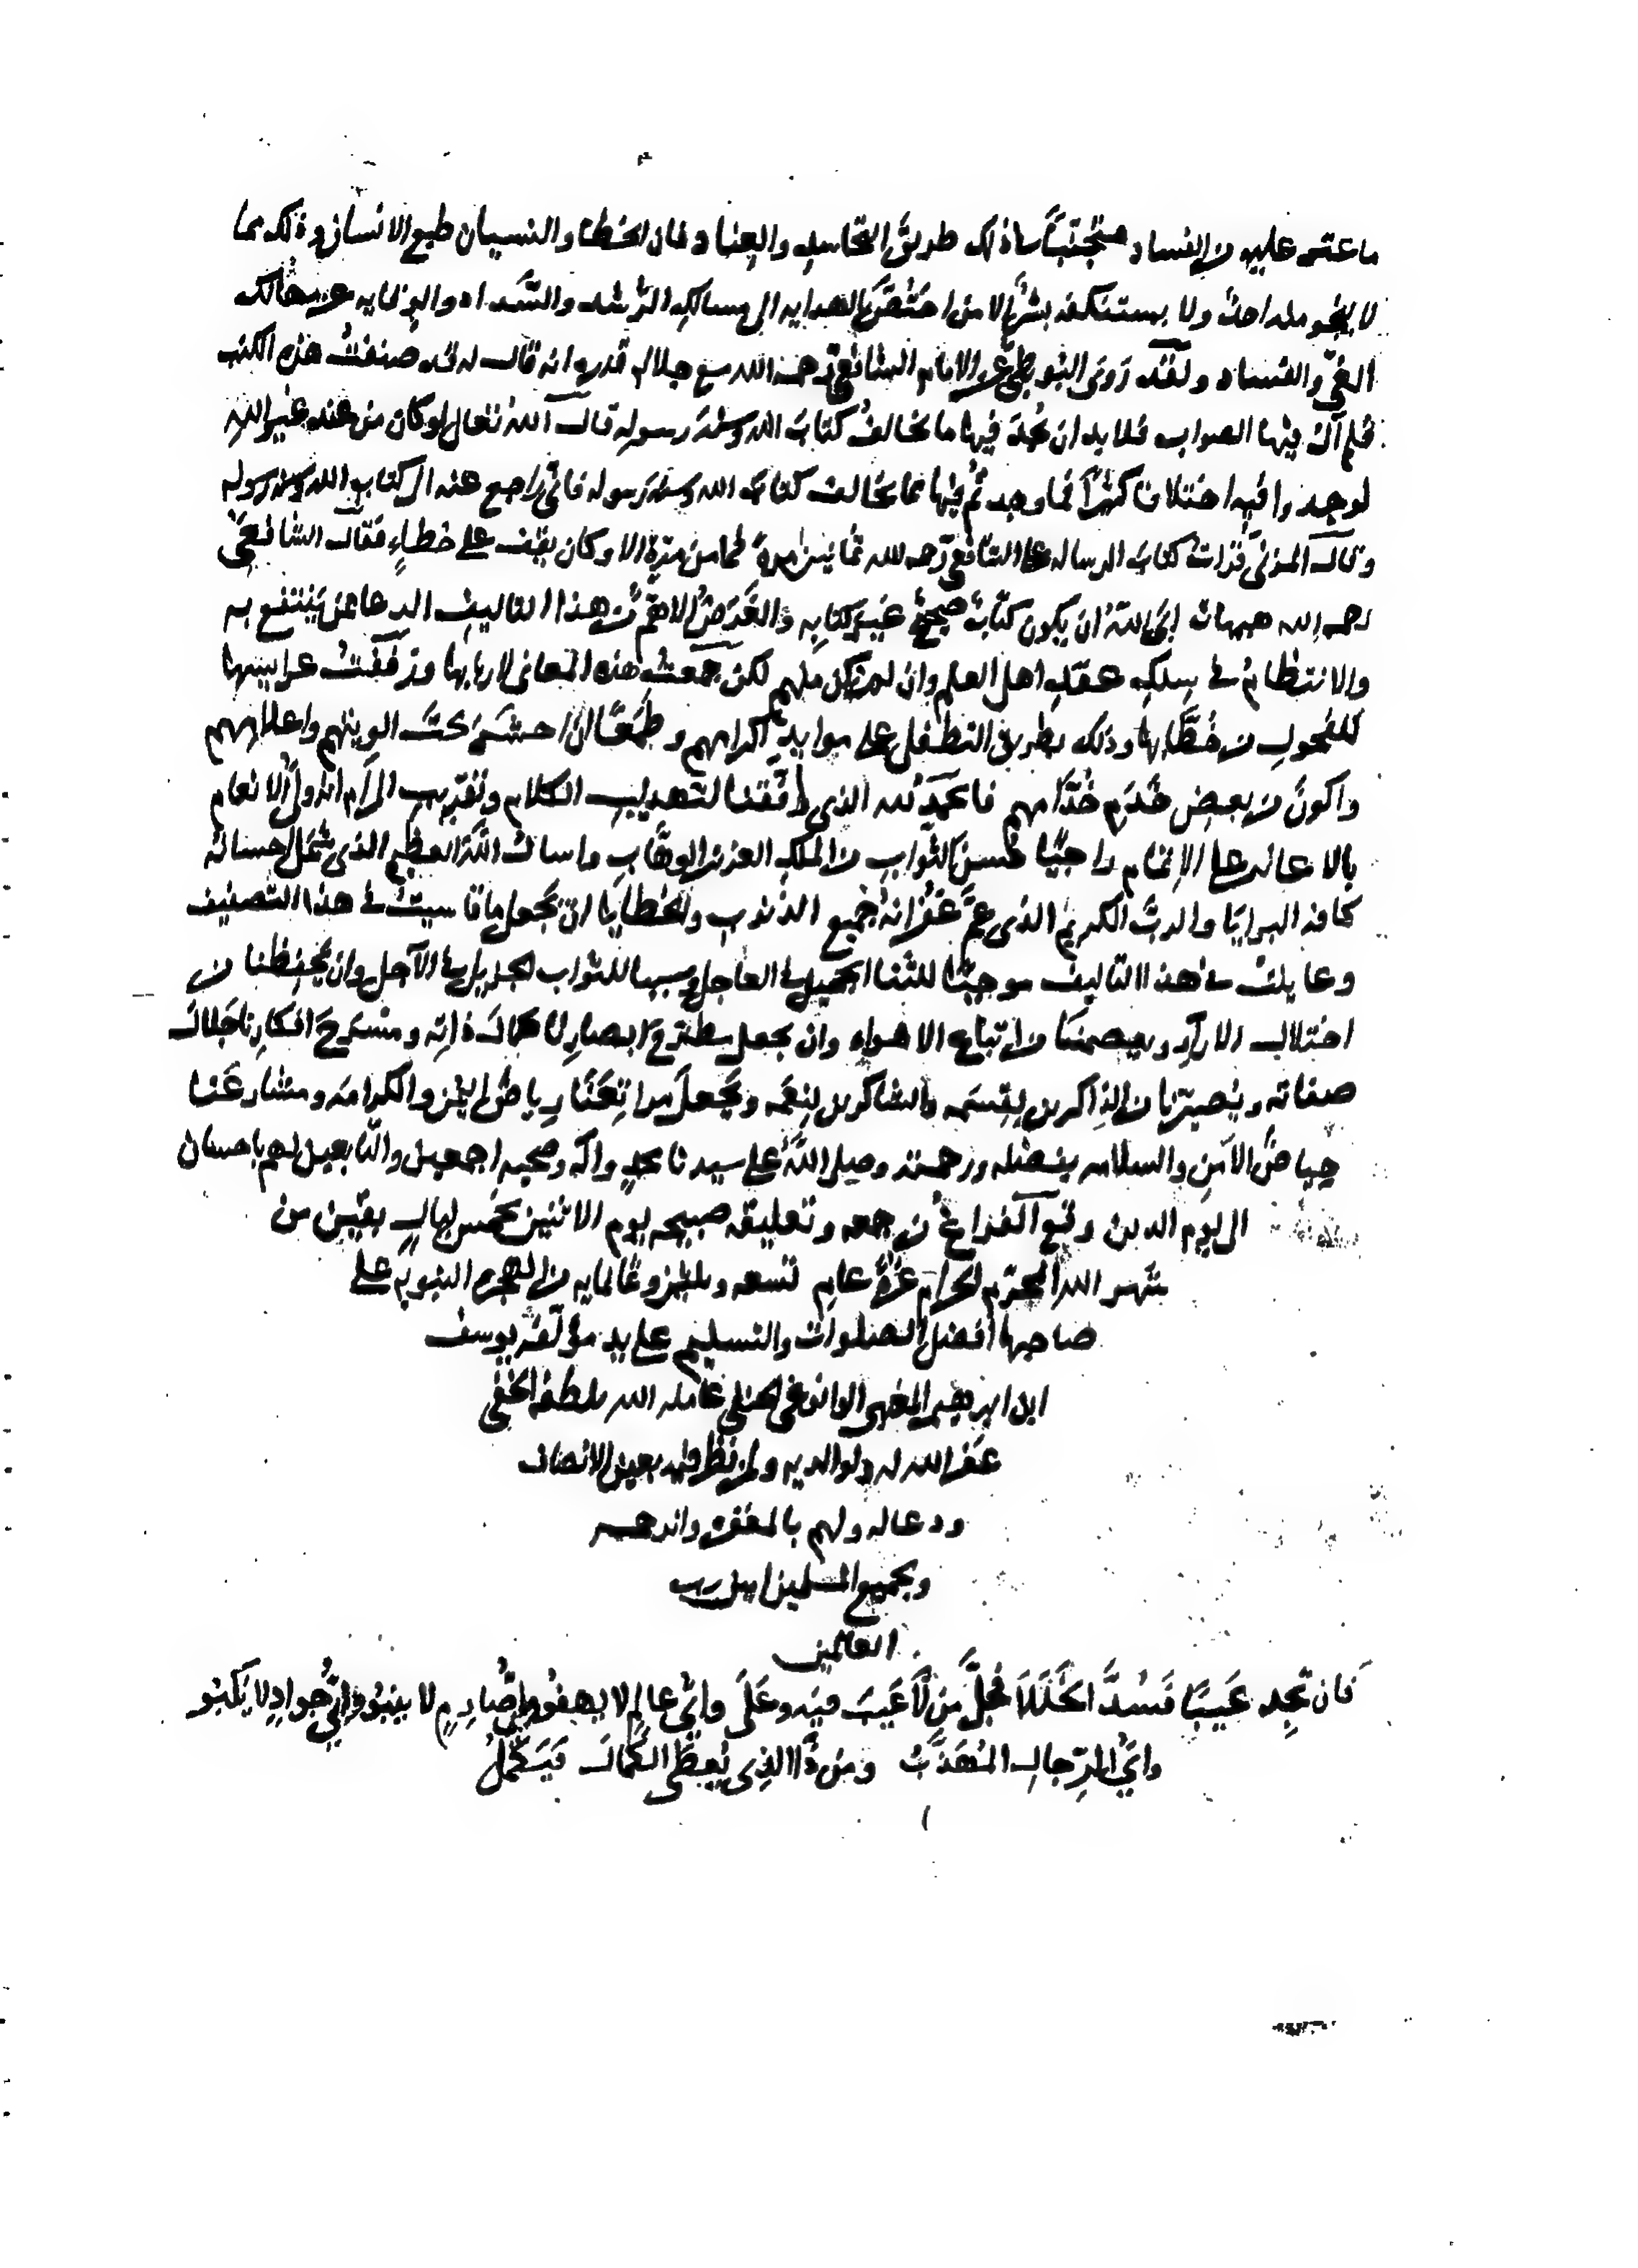 ما عثر عليه من الفساد متجنبًا ساذلك طريق التحاسد والعناد فان الخطا والنسيان طبع الانسان وذلك مما
لا ينجو منه احد ولا يستنكفه بشر الا من اختص بالهدايه الى مسالك الرشد والسداد والوقايه عن مهالك
الغي والفساد ولقد روى البويطي عن الامام الشافعي رحمه الله مع جلاله قدره انه قال له قد صنفت هذه الكتب
فلم آل فيها الصواب فلا بد ان يوجد فيها ما يخالف كتاب الله وسنة رسوله قال الله تعالى لو كان من عند غير الله
لوجدوا فيه اختلافا كثيرًا فما وجدتم فيها مما يخالف كتاب الله وسنة رسوله فاني راجع عنه الى كتاب الله وسنة رسوله
وقال المزني قرات كتاب الرساله على الشافعي رحمه الله ثمانين مرة فما من مرة الا وكان يقف على خطاءٍ فقال الشافعي
رحمه الله هيهات ابى الله ان يكون كتاب صحيح غير كتابه والغرض الاهم من هذا التاليف الدعا ممن ينتفع به
والانتظام في سلك عقد اهل العلم وان لم اكن منهم لكن جمعت هذه المعاني لاربابها وزففت عرايسها
للفحول من خطابها وذلك بطريق التطفل على موايد اكرامهم وطمعًا ان احشر تحت الويتهم واعلامهم
واكون من بعض خدم خدامهم فالحمد لله الذي وفقنا لتهذيب الكلام وتقريب المرام اذ ولي الانعام
بالاعانه على الاتمام راجيًا حسن الثواب من الملك العزيز الوهاب واسال الله العظيم الذي شمل احسانه
كافه البرايا والرب الكريم الذي عم غفرانه جميع الذنوب والخطايا ان يجعل ما قاسيت في هذا التصنيف
وعاينت في هذا التاليف موجبًا للثنا الجميل في العاجل وسببا للثواب الجزيل في الآجل وان يحفظنا من
اختلاف الارآء ويعصمنا من اتباع الاهواء وان يجعل مطرح ابصارنا كمال ذاته ومسرح افكارنا جلال
صفاته ويصيرنا من الذاكرين بقسمه والشاكرين لنعمه ويجعل مراتعنا رياض اليمن والكرامه ومشارعنا
حياض الامن والسلامه بفضله ورحمته وصلى الله على سيدنا محمدٍ وآله وصحبه اجمعين والتابعين لهم باحسان
الى يوم الدين وقع الفراغ من جمعه وتعليقه صبيحه يوم الاثنين لخمس ليالٍ بقين من
شهر الله المحرم الحرام غرة عام تسعه وثلثين وثمانمايه من الهجره النبويه على
صاحبها افضل الصلوات والتسليم على يد مؤلفه يوسف
ابن ابرهيم المغربي الوانوغي الحنفي عامله الله بلطفه الخفي
غفر الله له ولوالديه ولمن نظر فيه بعين الانصاف
ودعا له ولهم بالمغفره والرحمه
ولجميع المسلمين امين رب
العالمين
فان تجد عيبًا فسد الخللا فجل من لا عيب فيه وعلى واي عالمٍ لا يهفو واي صارمٍ لا ينبو واي جوادٍ لا يكبو
واي الرجال المهذب ومن ذا الذي يعطى الكمال فيكمل